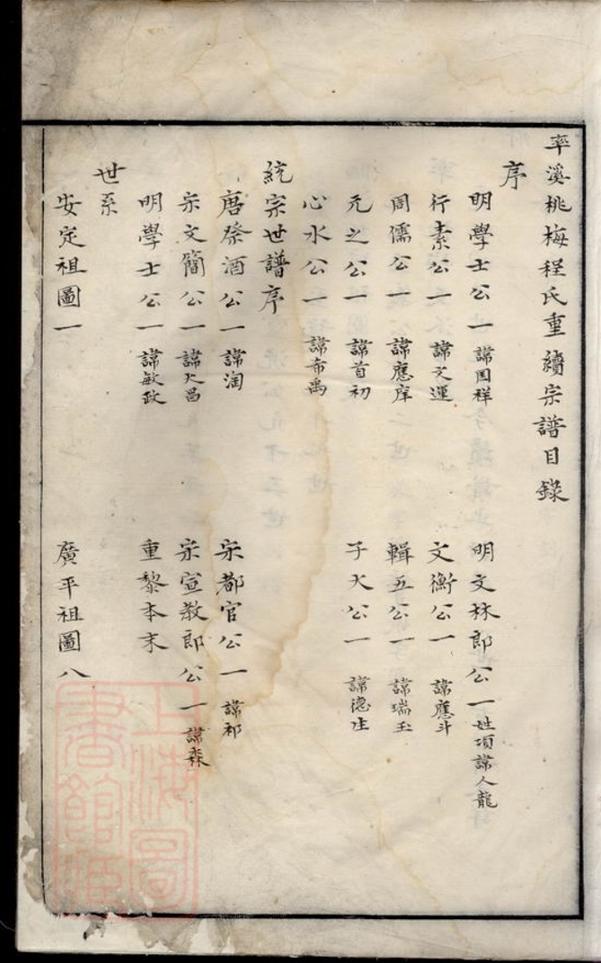 率溪桃梅程氏重續宗譜目錄
序
明學士公一 諱国祥 明文林郎公一 姓項諱人龍
行素公一 諱文運 文衡公一 諱應斗
同儒公一 諱應庠 輯五公一 諱瑞玉
元之公一 諱首初 子大公一 諱德生
心水公一 諱希禹
統宗世譜序
唐祭酒公一 諱淘 宋都官公一 諱祁
宋文簡公一 諱大昌 宋宣教郎公一 諱森
明學士公一 諱敏政 重黎本末
世系
安定祖圖一 廣平祖圖八
上海圖書館藏